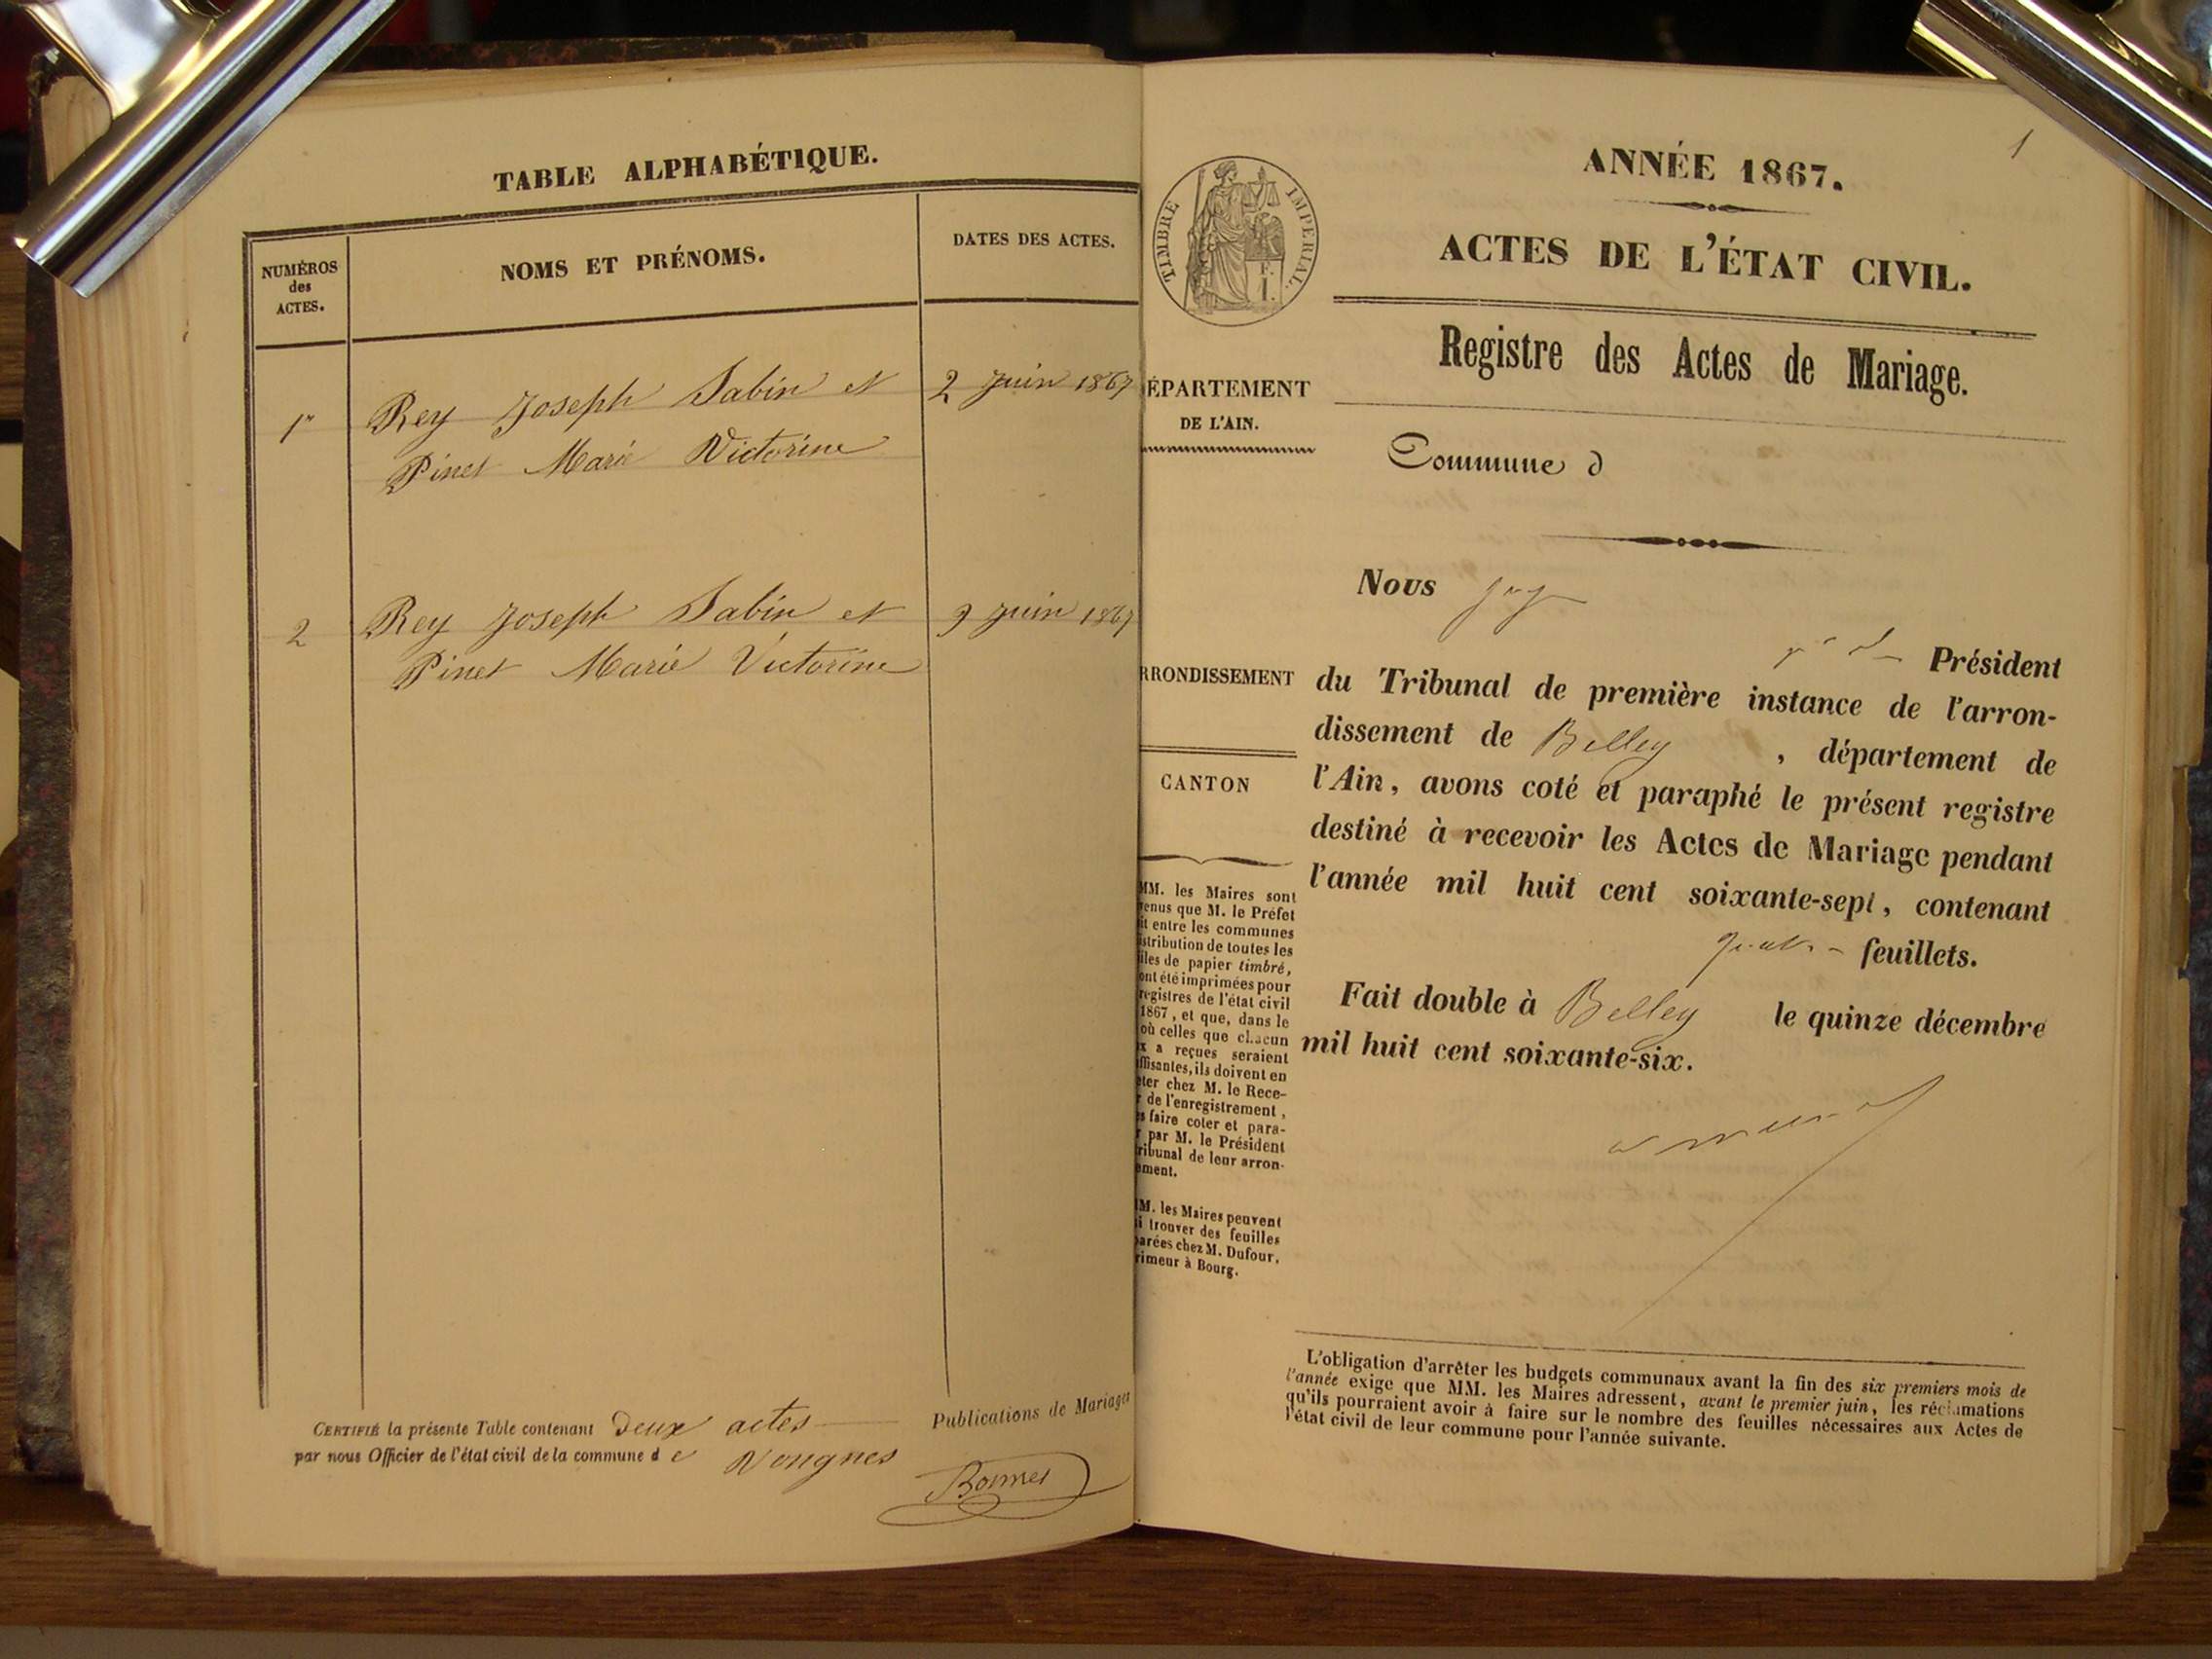 TABLE ALPHABÉTIQUE.
NUMÉROS
des
ACTES.
NOMS ET PRÉNOMS.
DATES DES ACTES.
1er Rey Joseph Sabin et 2 Juin 1867
Pinet Marie Victorine
2 Rey Joseph Sabin et 9 Juin 1867
Pinet Marie Victorine
CERTIFIÉ la présente Table contenant Deux actes Publications de Mariages
par nous Officier de l'état civil de la commune d e Vongnes
Bonnet
1
TIMBRE IMPERIAL.
ÉPARTEMENT
DE L'AIN.
RRONDISSEMENT
CANTON
MM. les Maires sont
enus que M. le Préfet
it entre les communes
stribution de toutes les
iles de papier timbré,
ont été imprimées pour
registres de l'état civil
1867, et que, dans le
où celles que chacun
x a reçues seraient
ffisantes, ils doivent en
eter chez M. le Rece-
r de l'enregistrement,
es faire coter et para-
r par M. le Président
ribunal de leur arron-
ement.
MM. les Maires peuvent
i trouver des feuilles
parées chez M. Dufour,
rimeur à Bourg.
ANNÉE 1867.
ACTES DE L'ÉTAT CIVIL.
Registre des Actes de Mariage.
Commune d
Nous juge
Président
du Tribunal de première instance de l'arron-
dissement de Belley , département de
l'Ain, avons coté et paraphé le présent registre
destiné à recevoir les Actes de Mariage pendant
l'année mil huit cent soixante-sept, contenant
quatre feuillets.
Fait double à Belley le quinze décembre
mil huit cent soixante-six.
L'obligation d'arrêter les budgets communaux avant la fin des six premiers mois de
l'année exige que MM. les Maires adressent, avant le premier juin, les réclamations
qu'ils pourraient avoir à faire sur le nombre des feuilles nécessaires aux Actes de
l'état civil de leur commune pour l'année suivante.